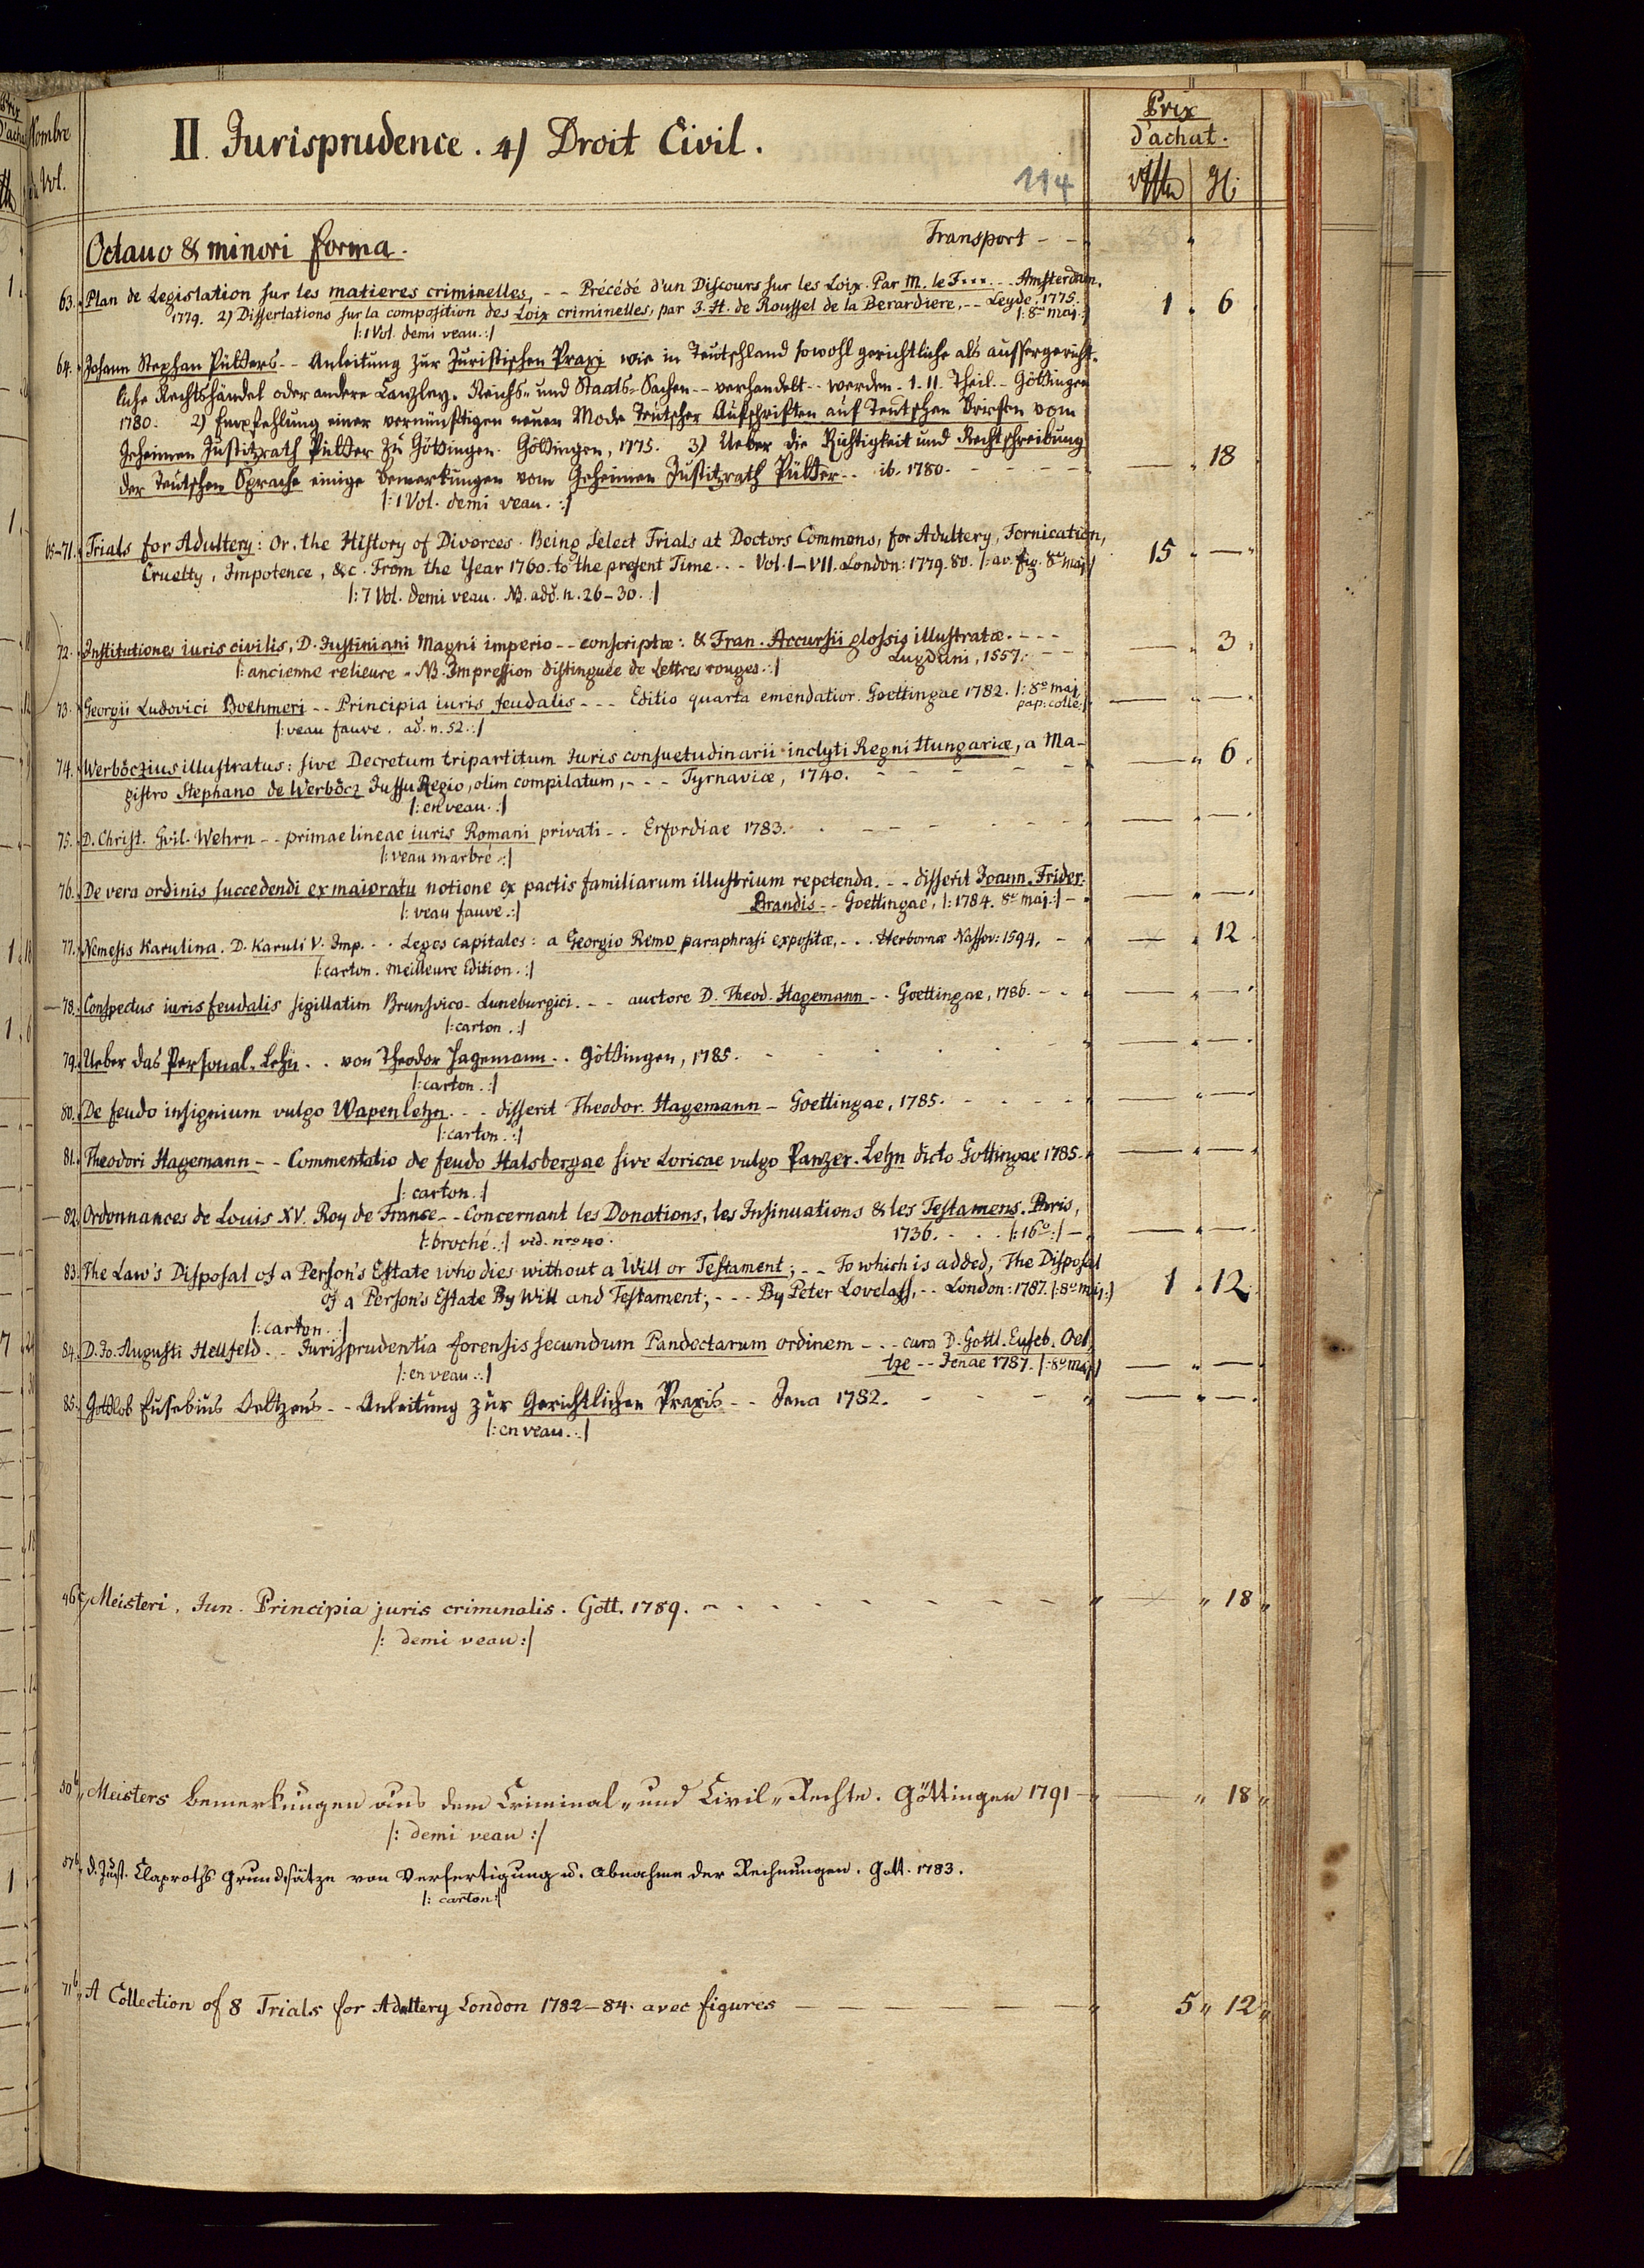 Nombre
de Vol.
II. Jurisprudence. 4) Droit Civil.
114
Prix
d'achat.
Octavo & minori forma.
Transport - -
63. Plan de Legislation sur les matieres criminelles, - - Précédé d'un Discours sur les Loix. Par M. le F... - - Amsterdam.
1779. 2) Dissertations sur la composition des Loix criminelles, par J. H. de Roussel de la Berardiere, - - Leyde. 1775.
|: 8° maj. :| 1 . 6
|: 1 Vol. demi veau. :|
64. Johann Stephan Pütters - - Anleitung zur Juristischen Praxi wie in Teutschland sowohl gerichtliche als aussergericht-
liche Rechtshändel oder andere Canzley- Reichs- und Staats-Sachen - - verhandelt - - werden. I. II. Theil. - Göttingen
1780. 2) Empfehlung einer vernünftigen neuen Mode Teutscher Aufschriften auf Teutschen Briefen vom
Geheimen Justitzrath Pütter zu Göttingen. Göttingen, 1775. 3) Ueber die Richtigkeit und Rechtschreibung
der Teutschen Sprache einige Bemerkungen vom Geheimen Justitzrath Pütter - - ib. 1780. - - - - — . 18
|: 1 Vol. demi veau. :|
65-71. Trials for Adultery: Or, the History of Divorces. Being Select Trials at Doctors Commons, for Adultery, Fornication,
Cruelty, Impotence, &c. From the Year 1760. to the present Time. - - Vol. I-VII. London: 1779. 80. |: av. fig. 8° maj :| 15 . —
|: 7 Vol. demi veau. NB. ad. n. 26-30. :|
72. Institutiones iuris civilis, D. Justiniani Magni imperio - - conscriptæ: & Fran. Accursii glossis illustratæ. - - - — . 3
|: ancienne relieure. NB. Impression distinguée de Lettres rouges. :| Lugduni, 1557. - -
73. Georgii Ludovici Boehmeri - - Principia iuris feudalis - - - Editio quarta emendatior. Goettingae 1782. |: 8° maj. — . —
pap. collé :|
|: veau fauve. ad. n. 52. :|
74. Werböczius illustratus: sive Decretum tripartitum Juris consuetudinarii inclyti Regni Hungariæ, a Ma- — . 6
gistro Stephano de Werböcz Jussu Regio, olim compilatum, - - - Tyrnaviæ, 1740. - - - - -
|: en veau. :|
75. D. Christ. Gvil. Wehrn - - primae lineae iuris Romani privati - - Erfordiae 1783. - - - - — . —
|: veau marbré :|
76. De vera ordinis succedendi ex maioratu notione ex pactis familiarum illustrium repetenda. - - disserit Joann. Frider.
Brandis - - Goettingae, |: 1784. 8° maj. :| - — . —
|: veau fauve. :|
77. Nemesis Karulina. D. Karuli V. Imp. - - Leges capitales: a Georgio Remo paraphrasi expositæ, - . . Herbornæ Nassov: 1594. - — . 12
|: carton. meilleure Edition. :|
78. Conspectus iuris feudalis sigillatim Brunsvico-Luneburgici. - - auctore D. Theod. Hagemann - - Goettingae, 1786. - - — . —
|: carton. :|
79. Ueber das Personal-Lehn. . . von Theodor Hagemann. . . Göttingen, 1785. — . —
|: carton. :|
80. De feudo insignium vulgo Wapenlehn. - - disserit Theodor. Hagemann - Goettingae, 1785. - - - - — . —
|: carton. :|
81. Theodori Hagemann - - Commentatio de feudo Halsbergae sive Loricae vulgo Panzer-Lehn dicto Gottingae 1785. — . —
|: carton. :|
82. Ordonnances de Louis XV. Roy de France - - Concernant les Donations, les Insinuations & les Testamens. Paris,
|: broché. :| vid. nro 40. 1736. . . . |: 16°. :| - — . —
83. The Law's Disposal of a Person's Estate who dies without a Will or Testament; - - To which is added, The Disposal
of a Person's Estate By Will and Testament; - - - By Peter Lovelass, - - London: 1787. |: 8° maj. :| 1 . 12
|: carton. :|
84. D. Jo. Augusti Hellfeld. . . Jurisprudentia forensis secundum Pandectarum ordinem - - - cura D. Gottl. Euseb. Oel-
tze - - Jenae 1787. |: 8° maj. :| — . —
|: en veau. :|
85. Gottlob Eusebius Oeltzens - - Anleitung zur Gerichtlichen Praxis - - Jena 1782. - - - - — . —
|: en veau. :|
46c. Meisteri, Jun. Principia juris criminalis. Gött. 1789. - - - - - - - — " 18 "
|: demi veau :|
50b. Meisters Bemerkungen aus dem Criminal- und Civil-Rechte. Göttingen 1791 - — " 18 "
|: demi veau :|
57b. D. Just. Claproths Grundsätze von Verfertigung u. Abnahme der Rechnungen. Gött. 1783.
|: carton :|
71b. A Collection of 8 Trials for Adultery London 1782-84. avec figures — — — — — 5 " 12 "